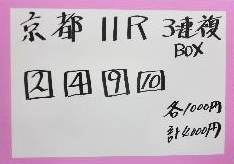 京都 11R 3連複
BOX
2 4 9 10
各1000円
計4000円